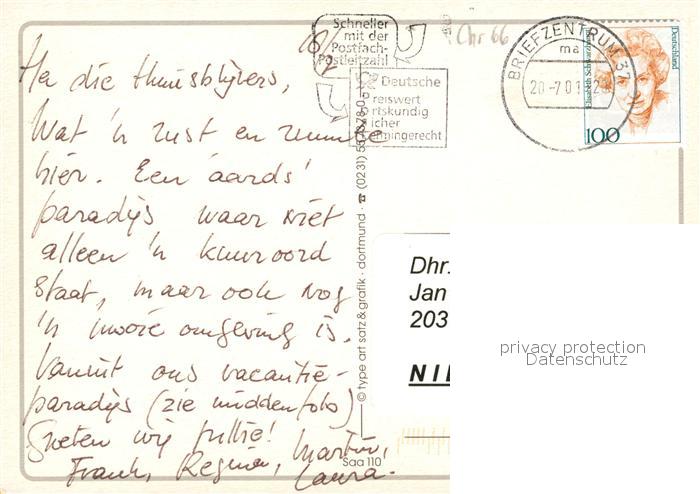 Schneller
mit der
Postfach-
Postleitzahl
Chr 66
BRIEFZENTRUM 37
ma
20-7.0
Deutschland
100
Deutsche
reiswert
rtskundig
icher
ermingerecht
18/7
Ha die thuisblijvers,
Wat 'n rust en ruimte
hier. Een 'aards'
paradijs waar niet
alleen 'n kuuroord
staat, maar ook nog
'n mooie omgeving is.
Vanuit ons vacantie-
paradijs (zie middenfoto)
Groeten wij jullie!
Frank, Regina, Martin,
Laura.
© type art satz & grafik · dortmund · ☎ (0231)
Saa 110
Dhr.
Jan
203
NI
privacy protection
Datenschutz